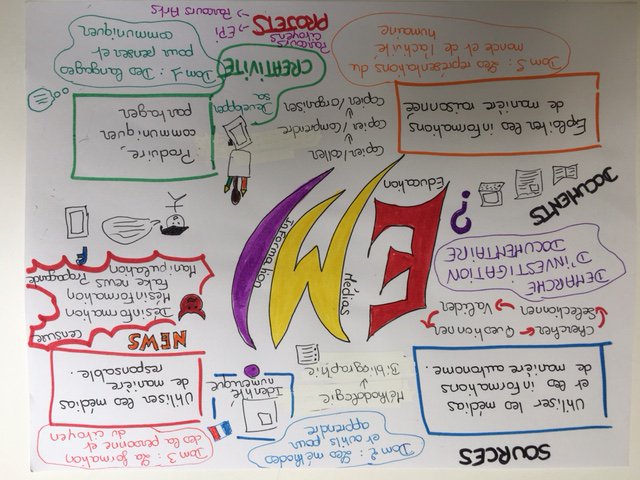 SOURCES
Utiliser les médias
et les informations
de manière autonome.
Dom 2 : Les méthodes
et outils pour
apprendre
Dom 3 : La formation
de la personne et
du citoyen
Méthodologie
Bibliographie
Identité
numérique
Utiliser les médias
de manière
responsable.
Chercher Questionner
Sélectionner Valider
DEMARCHE
D'INVESTIGATION
DOCUMENTAIRE
?
NEWS
censure
Désinformation
Mésinformation
Fake news
Manipulation
Propagande
f
EMI
Education
Médias
Information
DOCUMENTS
Exploiter les informations
de manière raisonnée
Copier/coller
Copier/Comprendre
Copier/organiser
Produire,
communiquer
partager
Développer
sa
CREATIVITE
Dom 5 : Les représentations du
monde et de l'activité
humaine
Dom 1 : Des langages
pour penser et
communiquer
PROJETS
Parcours
Citoyens
EPI
Parcours Arts